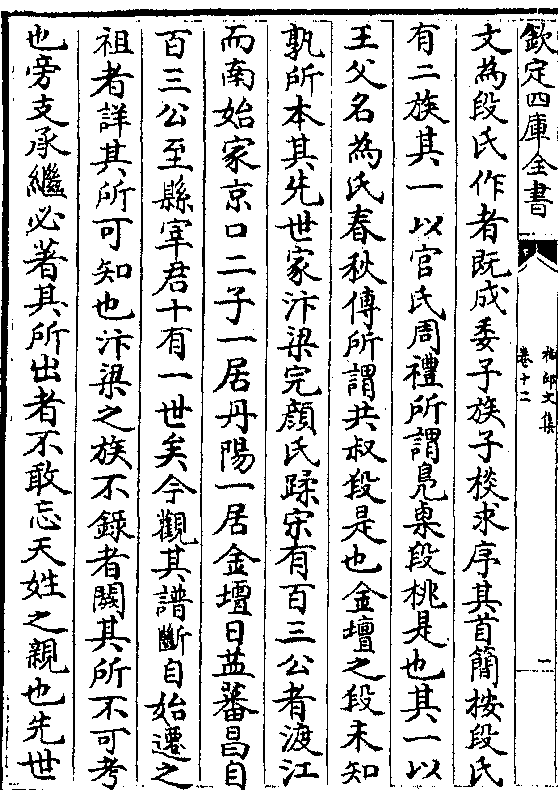 欽定四庫全書
梅邨文集
卷十二
一
文為段氏作者既成委子族子棪求序其首簡按段氏
有二族其一以官氏周禮所謂鳧㮚段桃是也其一以
王父名為氏春秋傳所謂共叔段是也金壇之段未知
孰所本其先世家汴梁完顔氏蹂宋有百三公者渡江
而南始家京口二子一居丹陽一居金壇日益蕃昌自
百三公至縣宰君十有一世矣今觀其譜斷自始遷之
祖者詳其所可知也汴梁之族不錄者闕其所不可考
也旁支承繼必著其所出者不敢忘天姓之親也先世